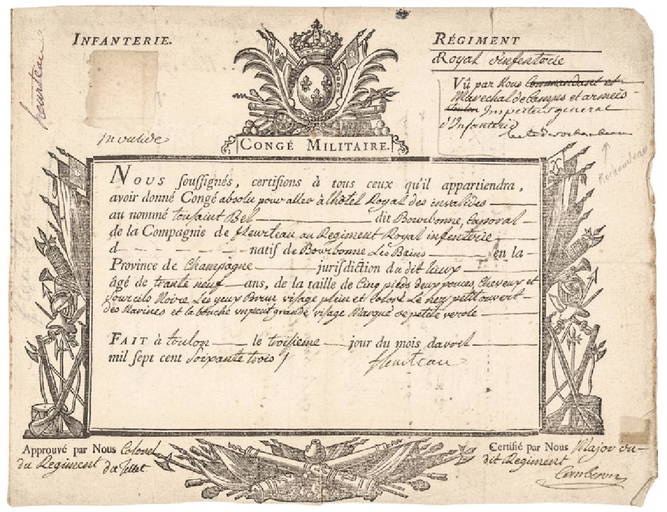 INFANTERIE.
RÉGIMENT
Royal d'infenterie
Vû par Nous Commandant et
Marechal de Camps et armées
Inspecteur general
d'Infanterie
heurteau
invalide
CONGÉ MILITAIRE.
NOUS soussignés, certifions à tous ceux qu'il appartiendra,
avoir donné Congé absolu pour aller a lhôtel Royal des invalides
au nommé tousaint Bel dit Bourbonne, caporal
de la Compagnie de fleurteau au Regiment Royal infenterie
d natif de Bourbonne Les Bains en la
Province de Champagne jurisdiction du dit Lieux
âgé de trante neuf ans, de la taille de Cinq pieds deux pouces, Cheveux et
sourcils Noire, Les yeux Brun visage plein et coloré Le nez petit ouvert
des Narines et la bouche un peut grande visage Marqué de petite verole
FAIT à toulon le troisieme jour du mois davril
mil sept cent soixante trois
fleurteau
Approuvé par Nous Colonel
du Regiment
Certifié par Nous Major du
dit Regiment